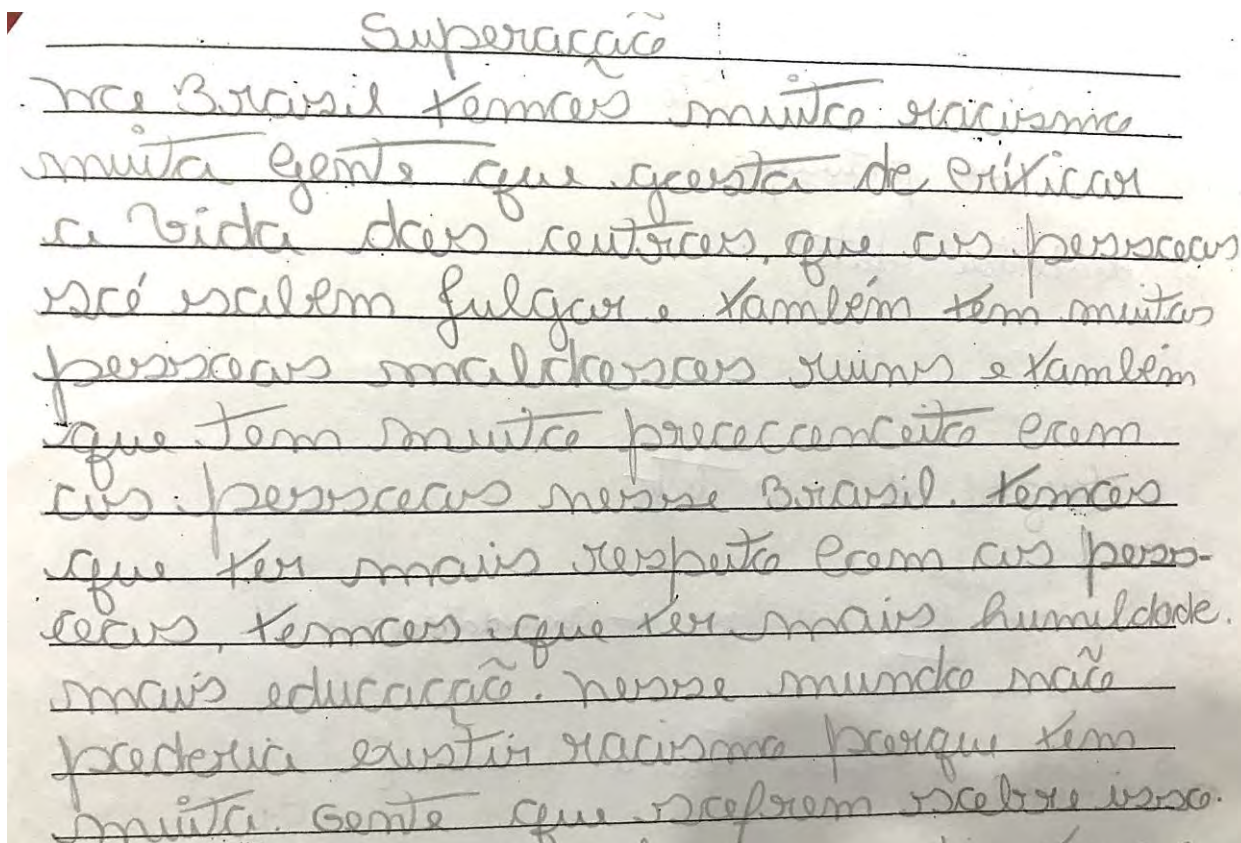 Superação
no Brasil temos muito racismo
muita gente que gosta de criticar
a vida dos outros, que as pessoas
só sabem julgar e também tem muitas
pessoas maldosas ruins e também
que tem muito preoconceito com
as pessoas nesse Brasil. temos
que ter mais respeito com as pess-
oas, temos que ter mais humildade.
mais educação. nesse mundo não
poderia existir racismo porque tem
muita. Gente que sofrem sobre isso.